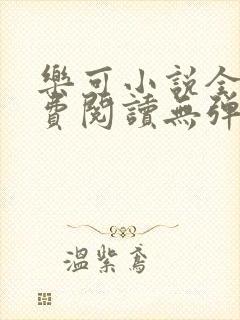 樂可小說全
費閱讀無彈
溫紫鳶